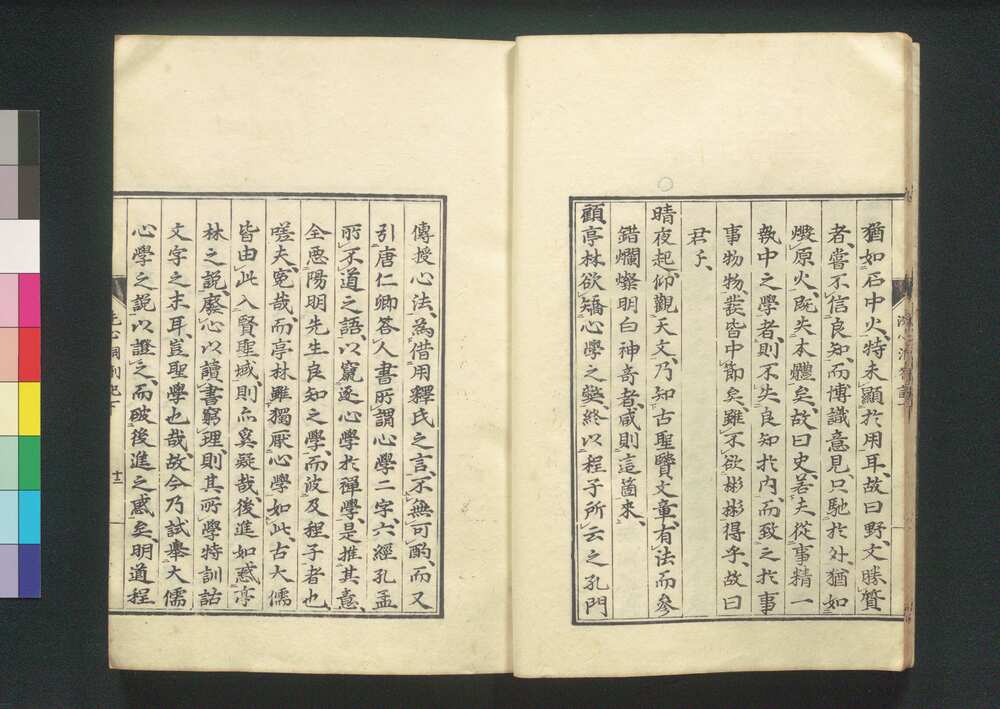 猶如石中火、特未顯於用耳、故曰野、文勝質
者、嘗不信良知、而博識意見只馳於外、猶如
燬原火、既失本體矣、故曰史、若夫從事精一
執中之學者、則不失良知於内、而致之於事
事物物、裁皆中節矣、雖不欲彬彬得乎、故曰
君子、
晴夜起、仰觀天文、乃知古聖賢文章有法而參
錯爛燦明白神奇者、咸則這箇來、
顧亭林欲矯心學之弊、終以程子所云之孔門
傳授心法、為借用釋氏之言、不無可酌、而又
引唐仁卿答人書、所謂心學二字、六經孔孟
所不道之語、以竄逐心學於禪學、是推其意、
全惡陽明先生良知之學、而波及程子者也、
嗟夫、寃哉、而亭林雖獨厭心學如此、古大儒
皆由此入賢聖域、則亦奚疑哉、後進如惑亭
林之説、廢心以讀書窮理、則其所學特訓詁
文字之末耳、豈聖學也哉、故今乃試擧大儒
心學之説以證之、而破後進之惑矣、明道程
十二